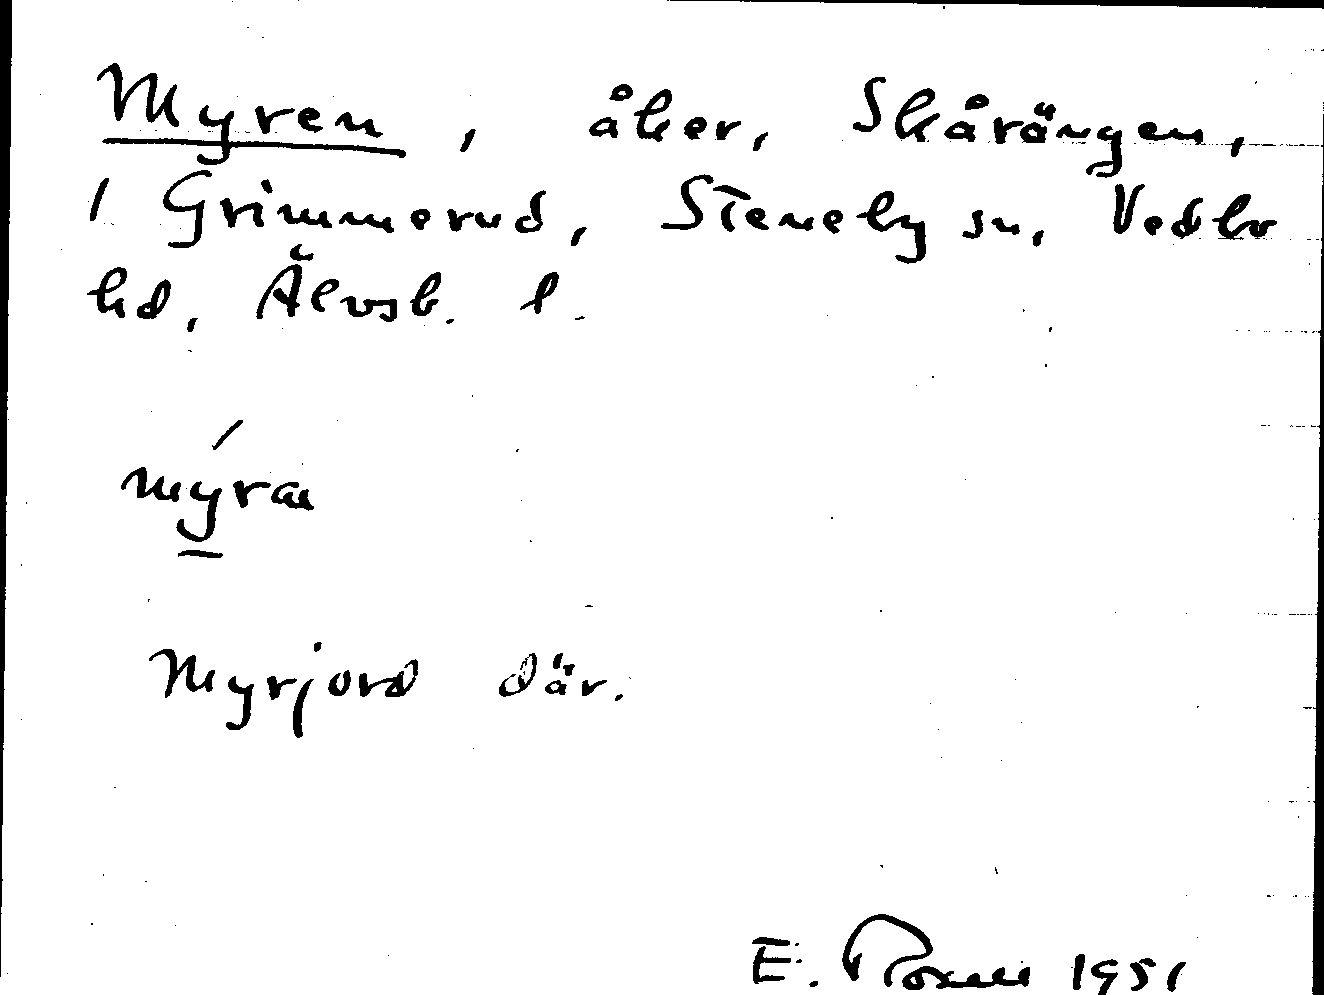 Myren, åker, Skårängen,
1 Grimmerud, Steneby sn, Vedbo
hd, Älvsb. l.
mýran
Myrjord där.
E. Rosell 1951